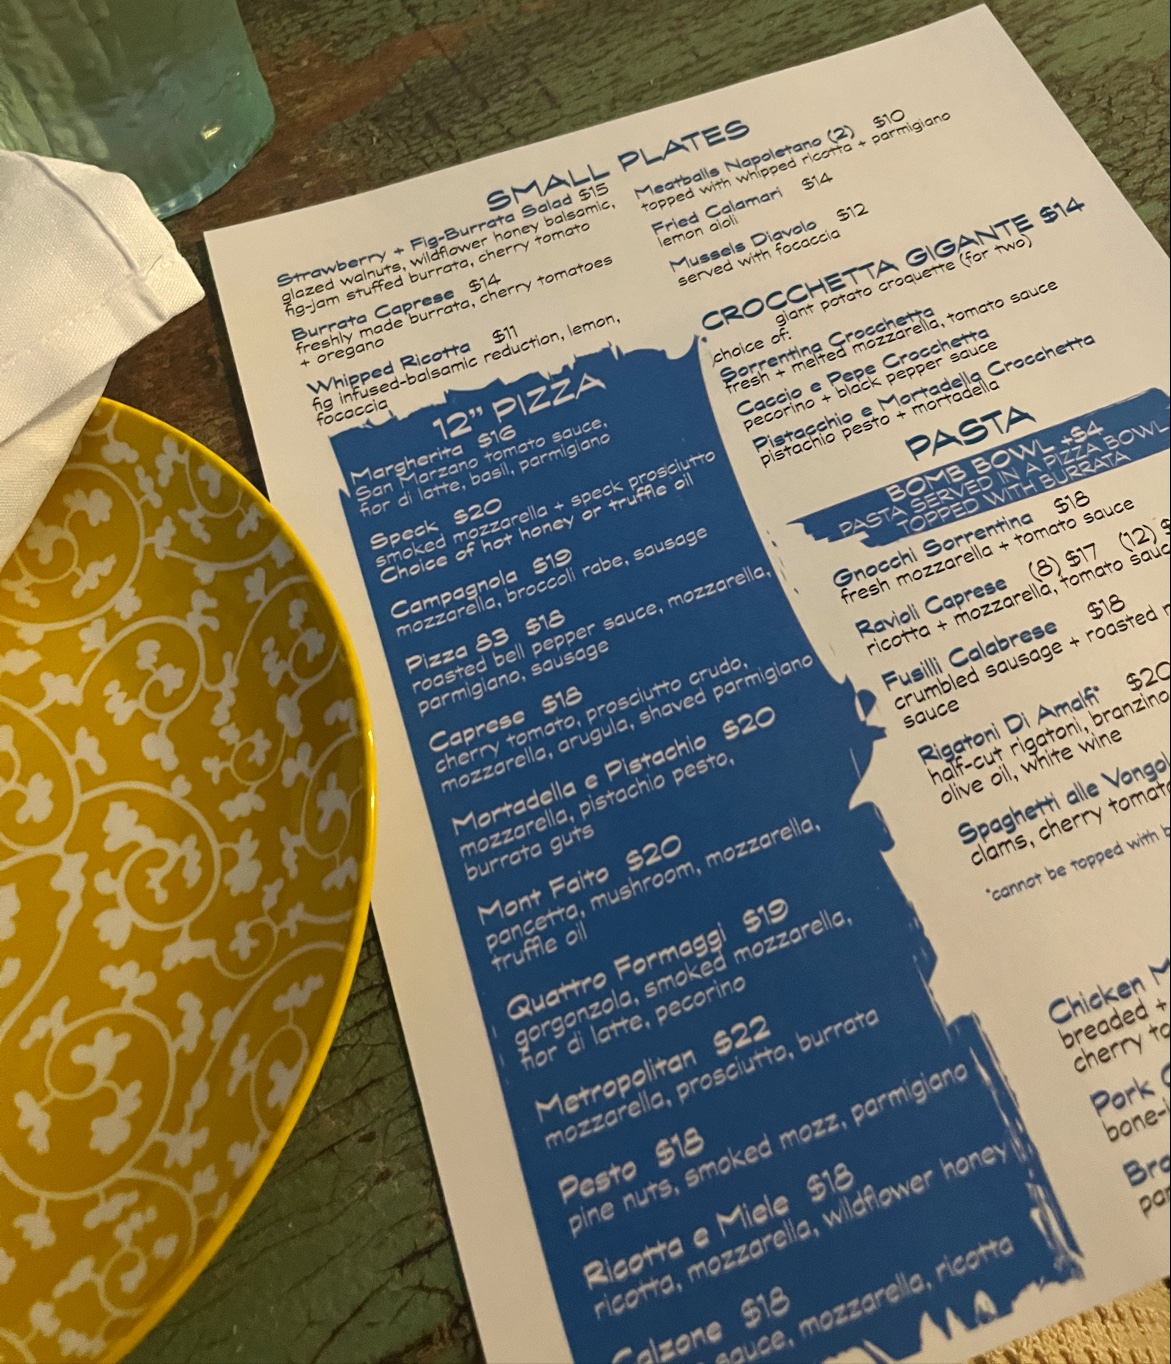 SMALL PLATES
Strawberry + Fig-Burrata Salad $15
glazed walnuts, wildflower honey balsamic,
fig-jam stuffed burrata, cherry tomato
Burrata Caprese $14
freshly made burrata, cherry tomatoes
+ oregano
Whipped Ricotta $11
fig infused-balsamic reduction, lemon,
focaccia
Meatballs Napoletano (2) $10
topped with whipped ricotta + parmigiano
Fried Calamari $14
lemon aioli
Mussels Diavolo $12
served with focaccia
CROCCHETTA GIGANTE $14
giant potato croquette (for two)
choice of:
Sorrentina Crocchetta
fresh + melted mozzarella, tomato sauce
Caccio e Pepe Crocchetta
pecorino + black pepper sauce
Pistacchio e Mortadella Crocchetta
pistachio pesto + mortadella
12" PIZZA
Margherita $16
San Marzano tomato sauce,
fior di latte, basil, parmigiano
Speck $20
smoked mozzarella + speck prosciutto
Choice of hot honey or truffle oil
Campagnola $19
mozzarella, broccoli rabe, sausage
Pizza 83 $18
roasted bell pepper sauce, mozzarella,
parmigiano, sausage
Caprese $18
cherry tomato, prosciutto crudo,
mozzarella, arugula, shaved parmigiano
Mortadella e Pistachio $20
mozzarella, pistachio pesto,
burrata guts
Mont Faito $20
pancetta, mushroom, mozzarella,
truffle oil
Quattro Formaggi $19
gorgonzola, smoked mozzarella,
fior di latte, pecorino
Metropolitan $22
mozzarella, prosciutto, burrata
Pesto $18
pine nuts, smoked mozz, parmigiano
Ricotta e Miele $18
ricotta, mozzarella, wildflower honey
Calzone $18
sauce, mozzarella, ricotta
PASTA
BOMB BOWL +$4
PASTA SERVED IN A PIZZA BOWL
TOPPED WITH BURRATA
Gnocchi Sorrentina $18
fresh mozzarella + tomato sauce
Ravioli Caprese (8) $17 (12) $
ricotta + mozzarella, tomato sauc
Fusilli Calabrese $18
crumbled sausage + roasted
sauce
Rigatoni Di Amalfi* $20
half-cut rigatoni, branzino
olive oil, white wine
Spaghetti alle Vongol
clams, cherry tomato
*cannot be topped with b
Chicken M
breaded +
cherry to
Pork
bone-i
Bra
pa